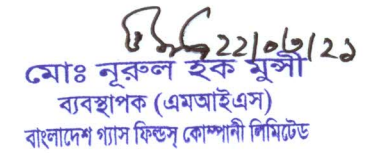 22/06/21
মোঃ নূরুল হক মুন্সী
ব্যবস্থাপক (এমআইএস)
বাংলাদেশ গ্যাস ফিল্ডস্ কোম্পানী লিমিটেড